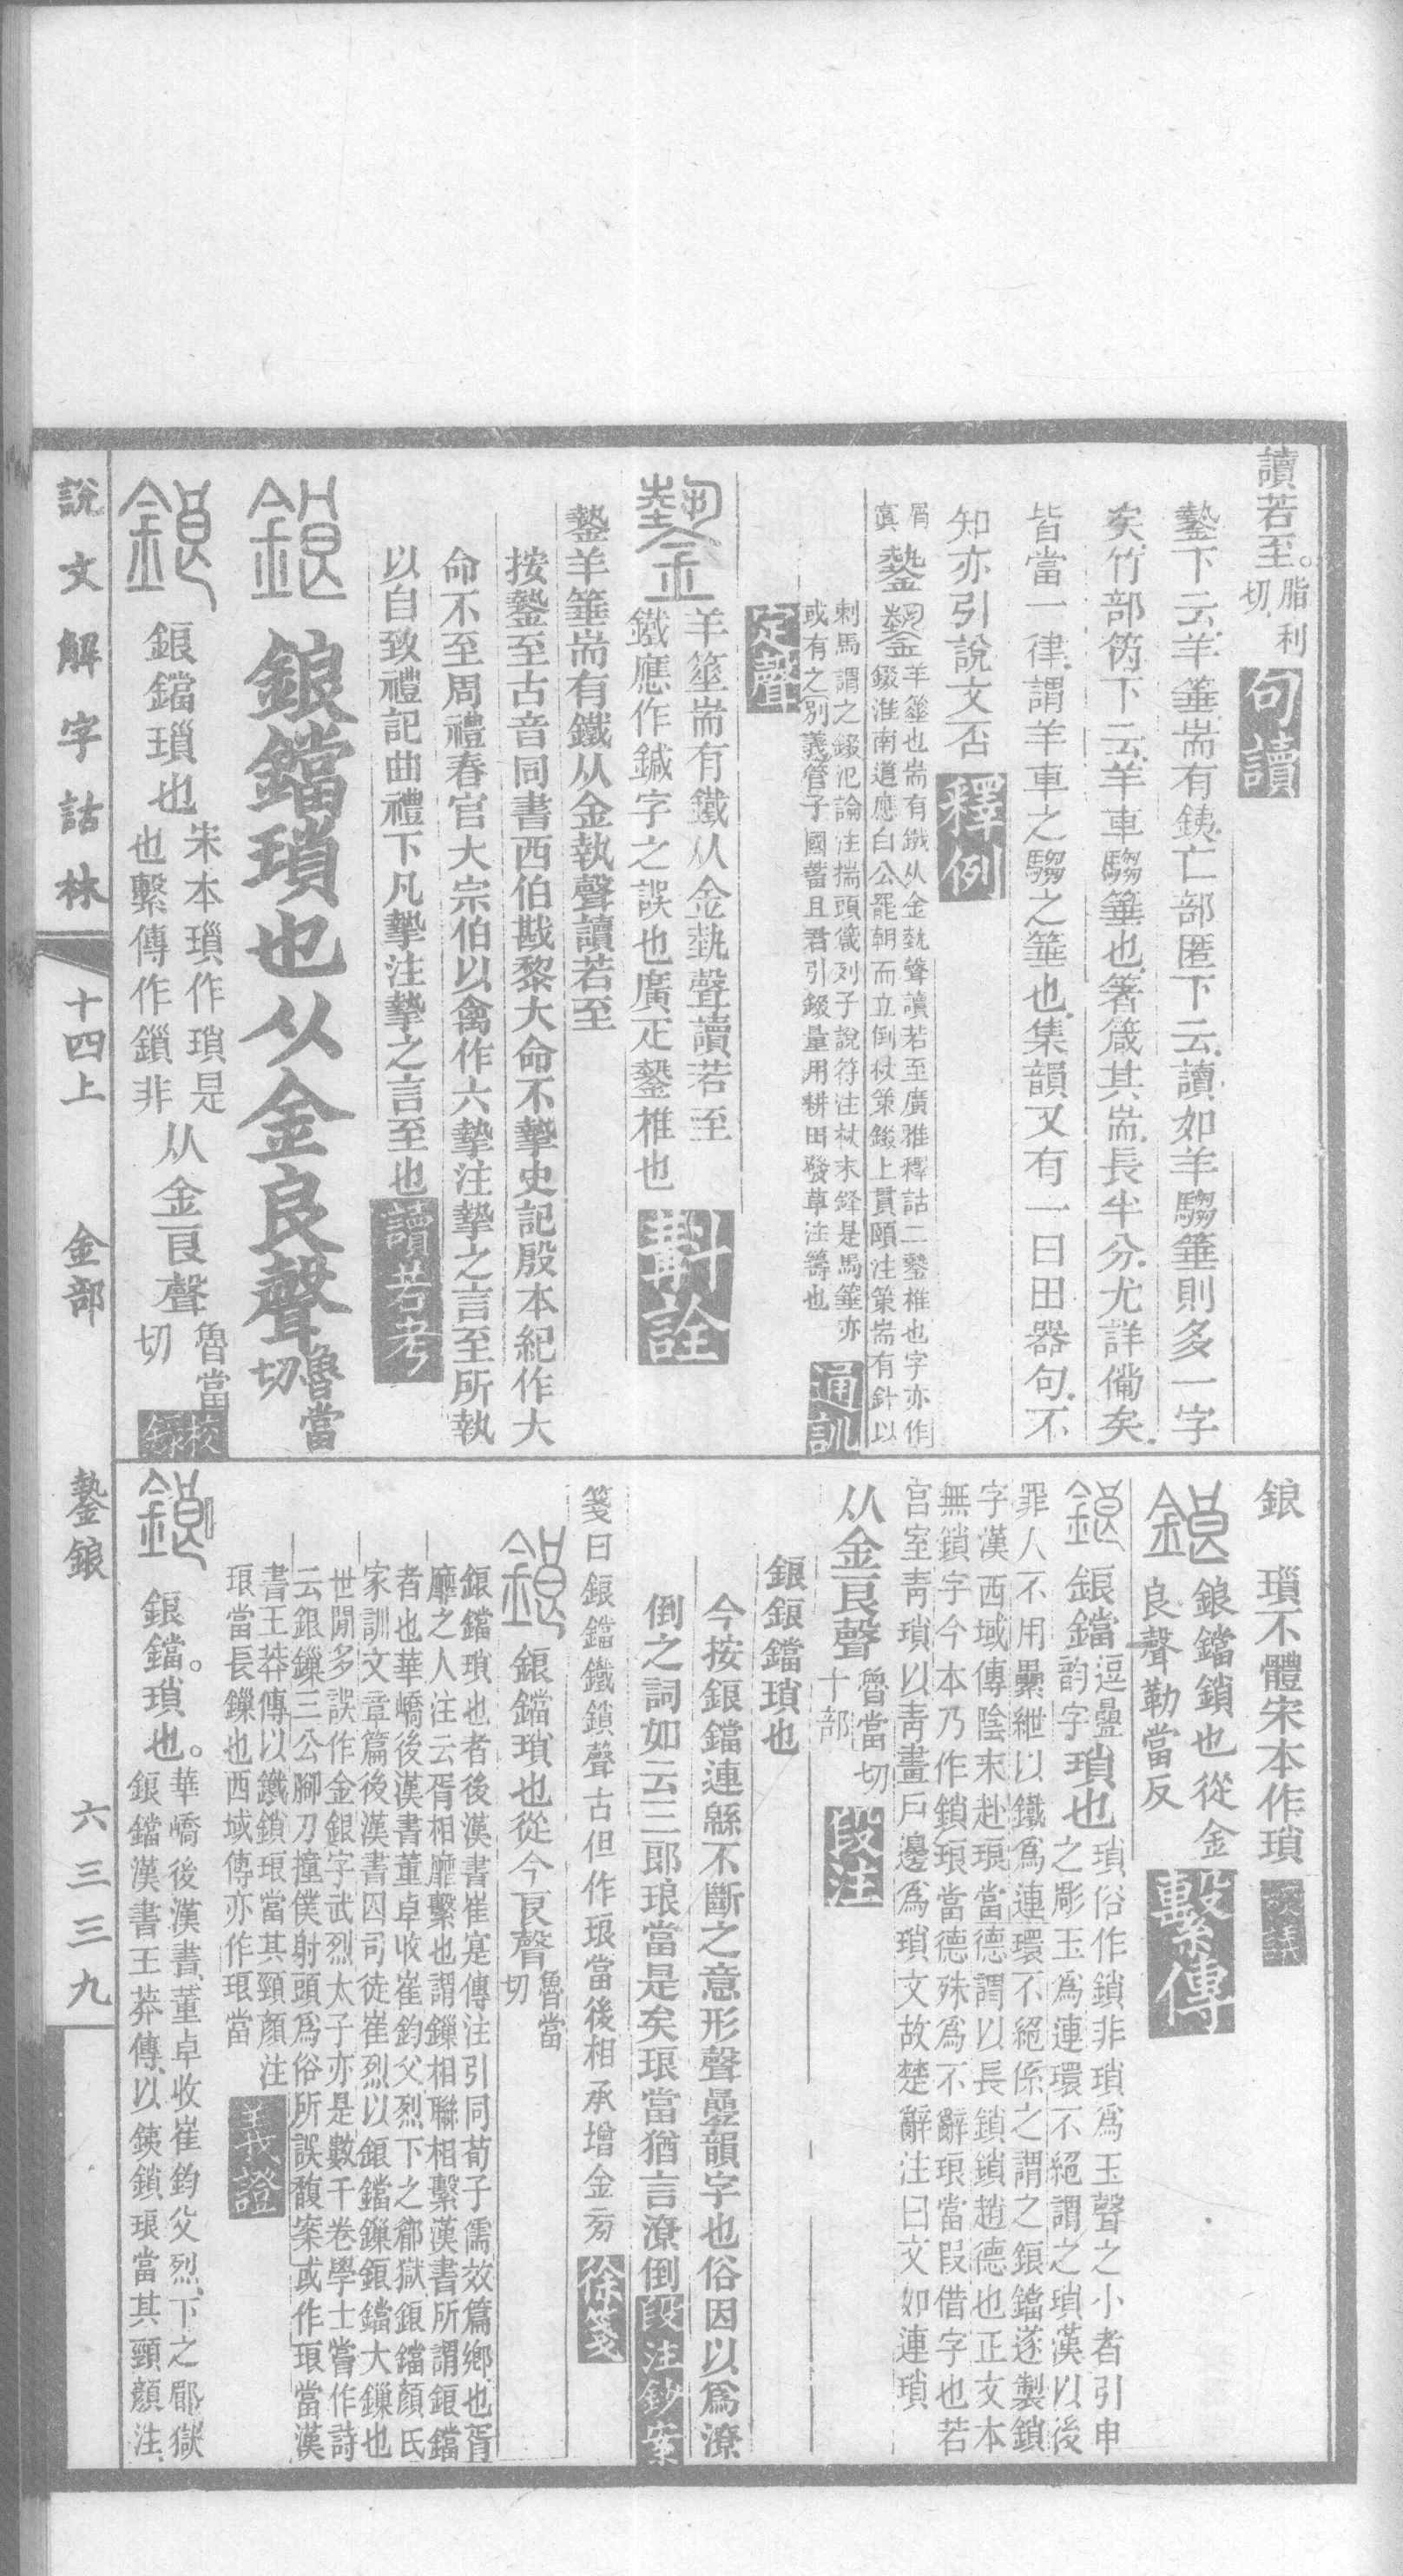 讀若至。脂利切 句讀
鏊下云羊箠耑有鐵亡部匿下云讀如羊騶箠則多一字
矣竹部笍下云羊車騶箠也箸箴其耑長半分尤詳僃矣
皆當一律謂羊車之騶之箠也集韻又有一曰田器句不
知亦引說文否 釋例
羊箠也耑有鐵从金執聲讀若至廣雅釋詁二鏊椎也字亦作
錣淮南道應白公罷朝而立倒杖策錣上貫頤注策耑有針以
刺馬謂之錣氾論注揣頭箴列子說符注杖末鋒是馬箠亦
或有之別義管子國蓄且君引錣量用耕田發草注籌也 通訓
定聲
羊箠耑有鐵从金執聲讀若至
鐵應作鍼字之誤也廣疋鏊椎也 斠詮
鏊羊箠耑有鐵从金執聲讀若至
按鏊至古音同書西伯戡黎大命不摯史記殷本紀作大
命不至周禮春官大宗伯以禽作六摯注摯之言至所執
以自致禮記曲禮下凡摯注摯之言至也 讀若考
鋃鐺瑣也从金良聲 魯當切
鋃鐺瑣也 宋本瑣作瑣是也繫傳作鎖非 从金良聲 魯當切 校錄
鋃 瑣不體宋本作瑣
鋃鐺鎖也從金良聲勒當反 繫傳
鋃鐺 逗疊韵字 瑣也 瑣俗作鎖非瑣爲玉聲之小者引申
之彫玉爲連環不絕謂之瑣漢以後
罪人不用纍紲以鐵爲連環不絕係之謂之鋃鐺遂製鎖
字漢西域傳陰末赴琅當德謂以長鎖鎖趙德也正文本
無鎖字今本乃作鎖琅當德殊爲不辭琅當叚借字也若
宮室靑瑣以靑畫戶邊爲瑣文故楚辭注曰文如連瑣
从金良聲 魯當切十部 段注
鋃鋃鐺瑣也
今按鋃鐺連緜不斷之意形聲疊韻字也俗因以爲潦
倒之詞如云三郎琅當是矣琅當猶言潦倒 段注鈔案
箋曰鋃鐺鐵鎖聲古但作琅當後相承增金㫄 徐箋
鋃鐺瑣也從今良聲 魯當切
鋃鐺瑣也者後漢書崔寔傳注引同荀子儒效篇鄉也胥
靡之人注云胥相靡繫也謂鏁相聯相繫漢書所謂鋃鐺
者也華嶠後漢書董卓收崔鈞父烈下之郿獄鋃鐺顔氏
家訓文章篇後漢書囚司徒崔烈以鋃鐺鏁鋃鐺大鏁也
世閒多誤作金銀字武烈太子亦是數千卷學士嘗作詩
云銀鏁三公腳刀撞僕射頭爲俗所誤馥案或作琅當漢
書王莽傳以鐵鎖琅當其頸顔注
琅當長鏁也西域傳亦作琅當 義證
鋃鐺。瑣也。華嶠後漢書董卓收崔鈞父烈下之郿獄
鋃鐺漢書王莽傳以鐵鎖琅當其頸顔注
說文解字詁林 十四上 金部 鏊鋃 六三三九